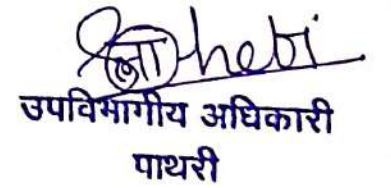 उपविभागीय अधिकारी
पाथरी